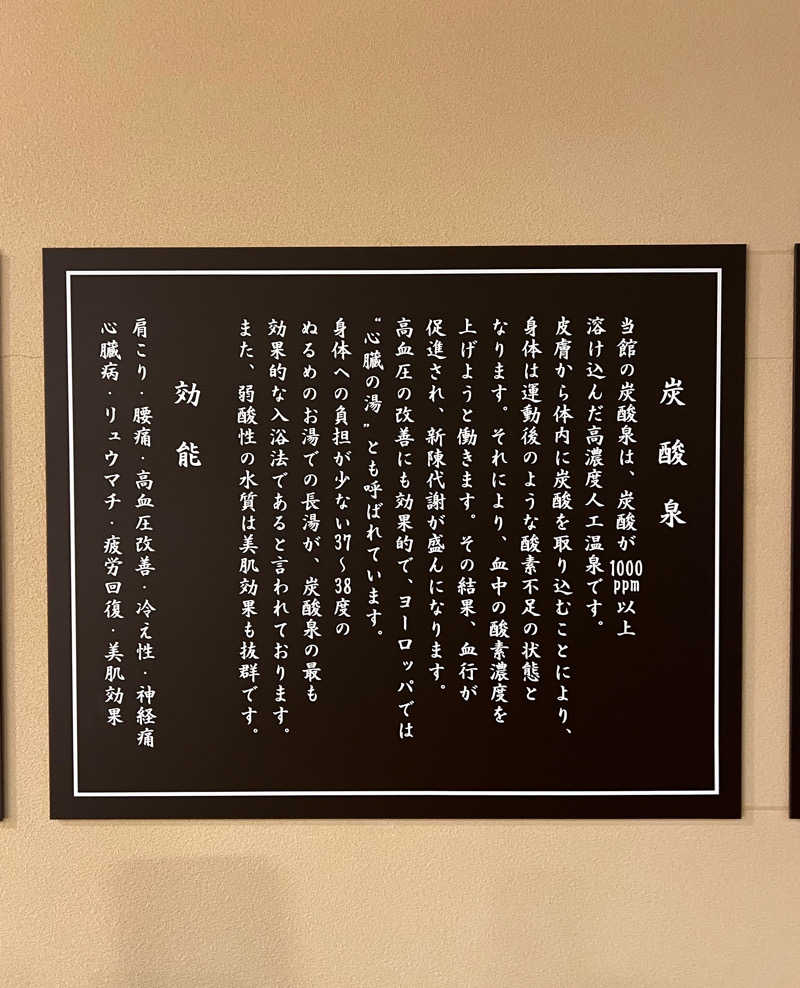 炭酸泉
当館の炭酸泉は、炭酸が1000ppm以上
溶け込んだ高濃度人工温泉です。
皮膚から体内に炭酸を取り込むことにより、
身体は運動後のような酸素不足の状態と
なります。それにより、血中の酸素濃度を
上げようと働きます。その結果、血行が
促進され、新陳代謝が盛んになります。
高血圧の改善にも効果的で、ヨーロッパでは
“心臓の湯”とも呼ばれています。
身体への負担が少ない37～38度の
ぬるめのお湯での長湯が、炭酸泉の最も
効果的な入浴法であると言われております。
また、弱酸性の水質は美肌効果も抜群です。
効能
肩こり・腰痛・高血圧改善・冷え性・神経痛
心臓病・リュウマチ・疲労回復・美肌効果